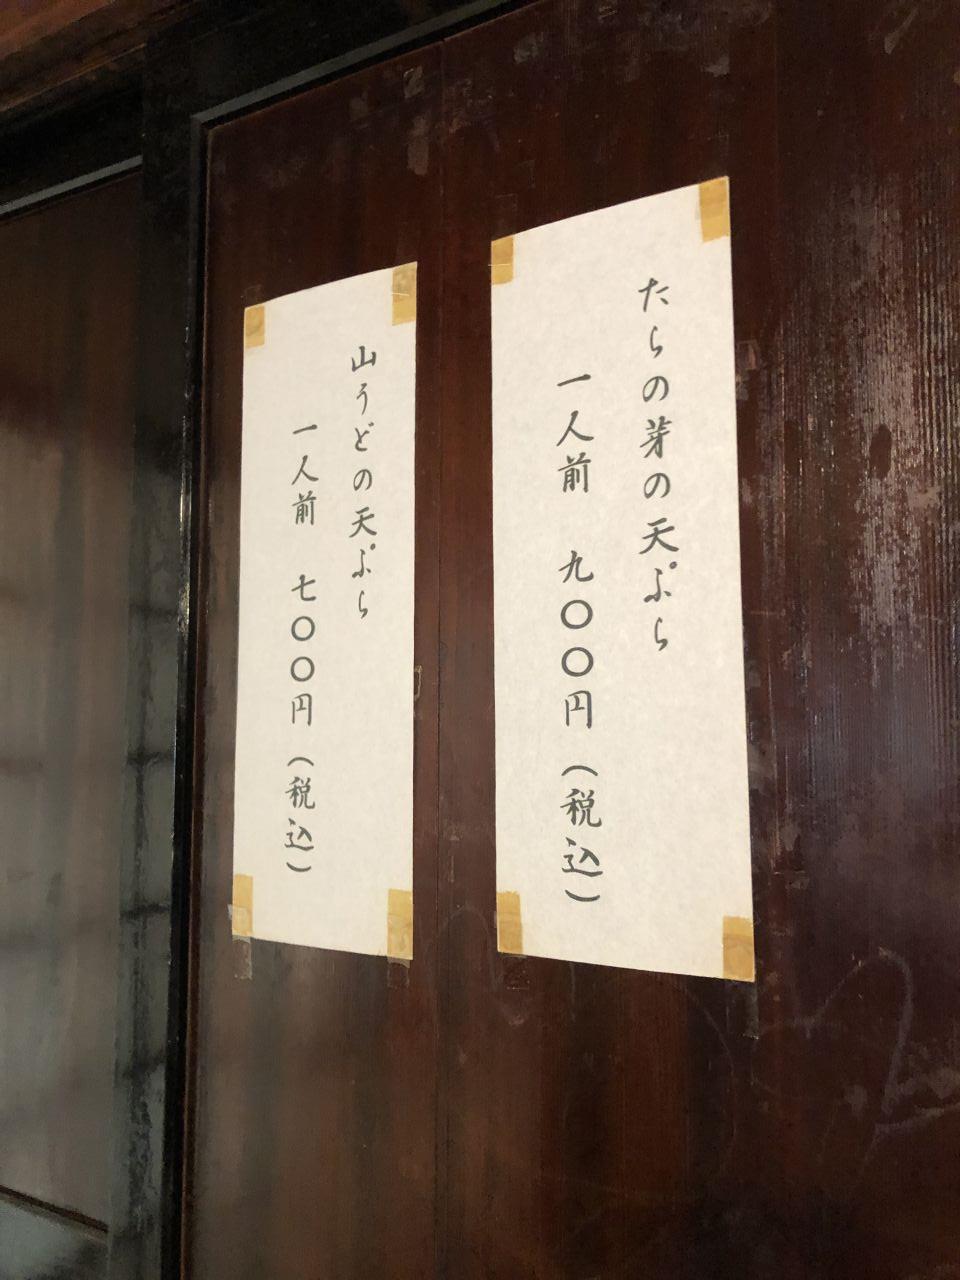 たらの芽の天ぷら
一人前 九〇〇円（税込）
山うどの天ぷら
一人前 七〇〇円（税込）